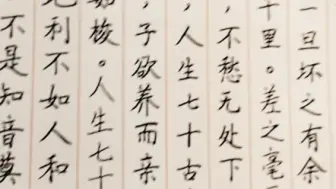 一旦坏之有余
千里。差之毫
，不愁无处下
，人生七十古
，子欲养而亲
如梭。人生七十
地利不如人和
不是知音莫